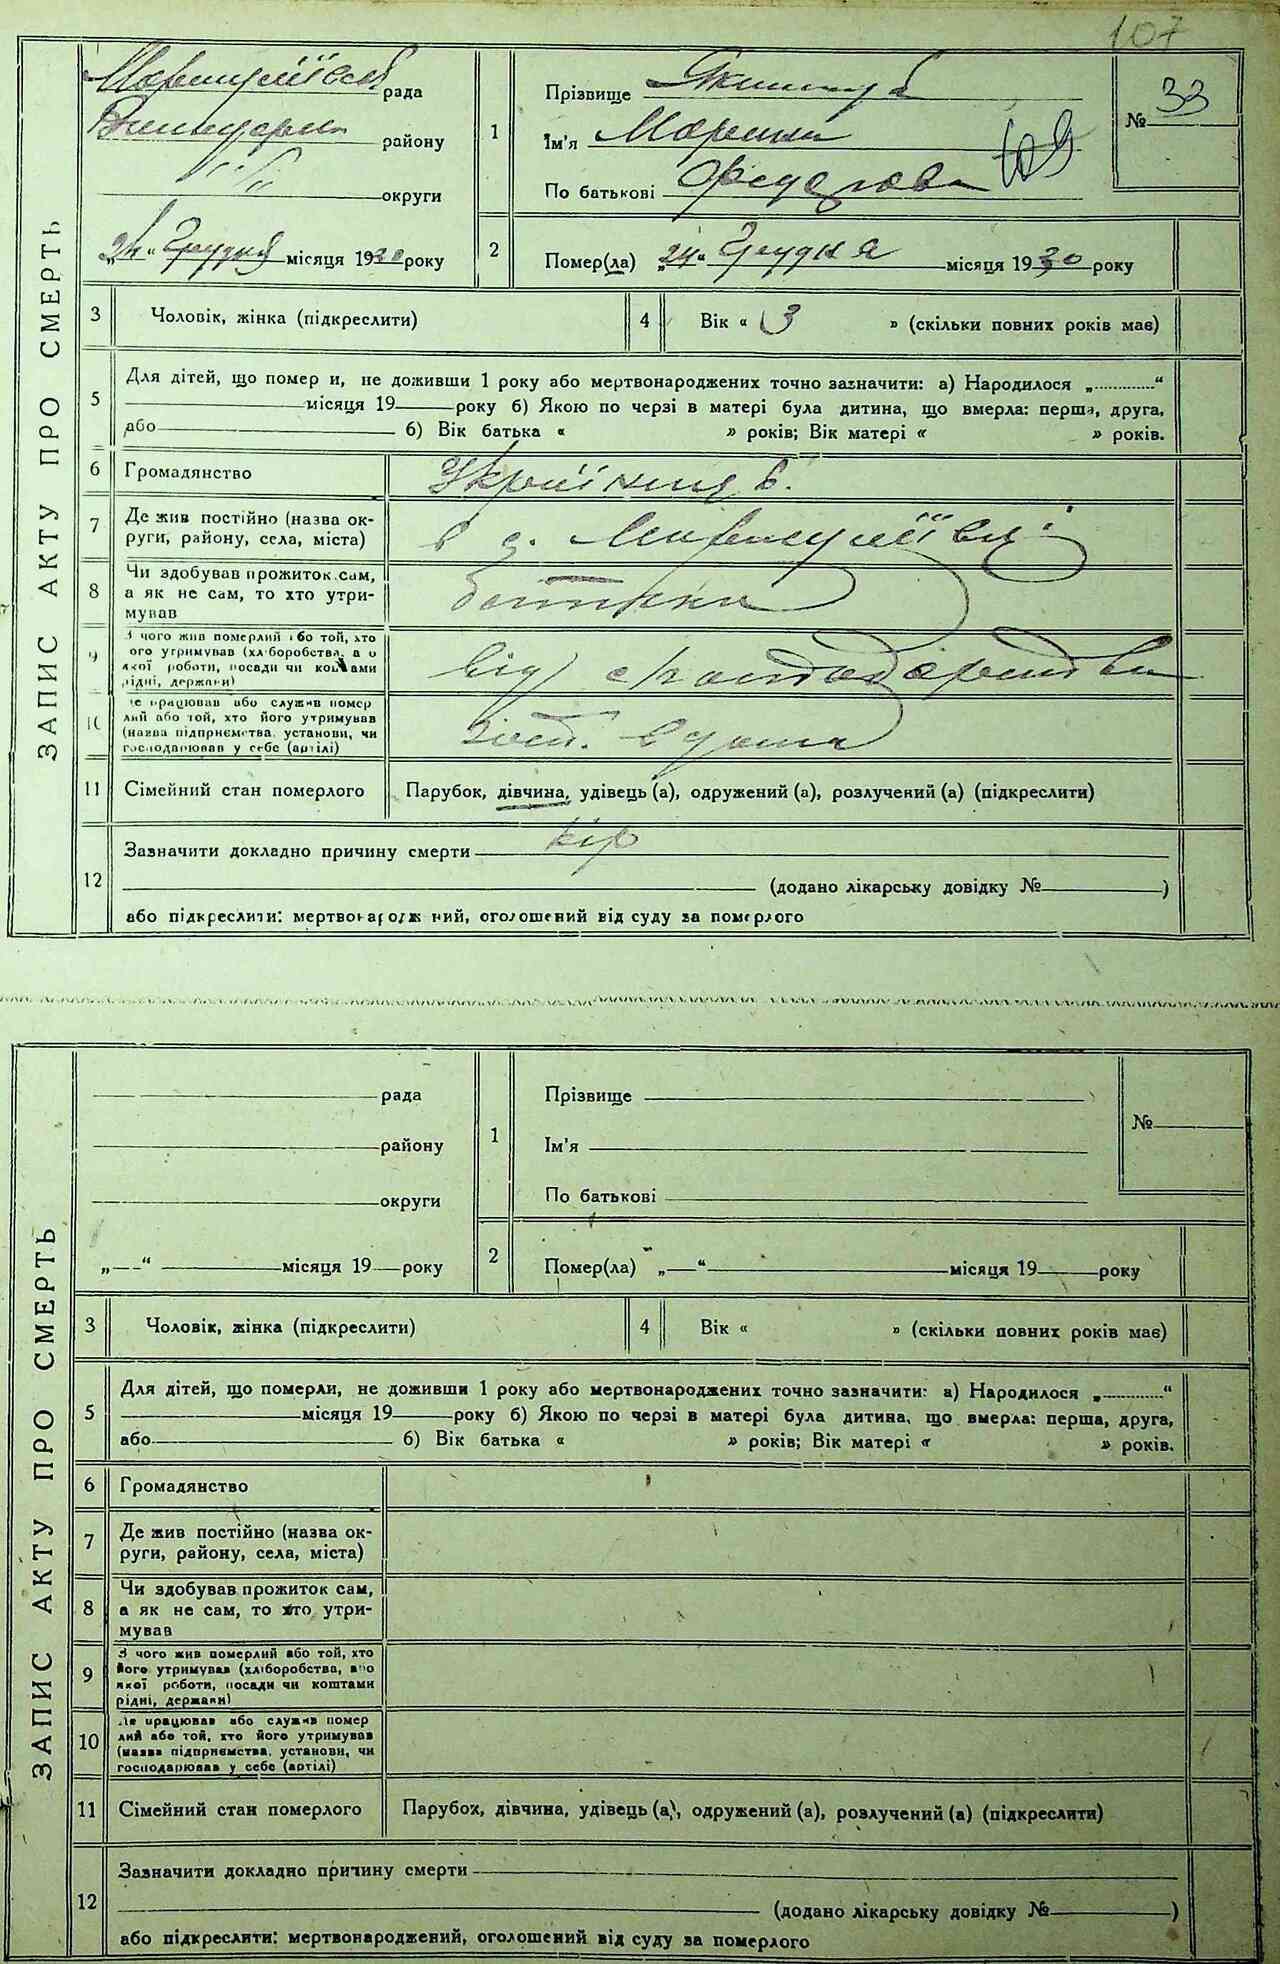 107
ЗАПИС АКТУ ПРО СМЕРТЬ
рада
району
округи
„24“ Грудня місяця 1930 року
1
Прізвище
Ім'я Марина
По батькові Федорова
№ 33
2
Помер(ла) „24“ Грудня місяця 1930 року
3
Чоловік, жінка (підкреслити)
4
Вік « 3 » (скільки повних років має)
5
Для дітей, що помер и, не доживши 1 року або мертвонароджених точно зазначити: а) Народилося „ “
місяця 19 року б) Якою по черзі в матері була дитина, що вмерла: перша, друга,
або б) Вік батька « » років; Вік матері « » років.
6
Громадянство
7
Де жив постійно (назва ок-
руги, району, села, міста)
в с.
8
Чи здобував прожиток сам,
а як не сам, то хто утри-
мував
батьки
9
З чого жив померлий або той, хто
його утримував (хліборобства, або
якої роботи, посади чи коштами
рідні, держави)
від
10
Де працював або служив помер
лий або той, хто його утримував
(назва підприємства, установи, чи
господарював у себе (артілі)
11
Сімейний стан померлого
Парубок, дівчина, удівець (а), одружений (а), розлучений (а) (підкреслити)
12
Зазначити докладно причину смерти кір
(додано лікарську довідку № )
або підкреслити: мертвонароджений, оголошений від суду за померлого
ЗАПИС АКТУ ПРО СМЕРТЬ
рада
району
округи
„ “ місяця 19 року
1
Прізвище
Ім'я
По батькові
№
2
Помер(ла) „ “ місяця 19 року
3
Чоловік, жінка (підкреслити)
4
Вік « » (скільки повних років має)
5
Для дітей, що померли, не доживши 1 року або мертвонароджених точно зазначити: а) Народилося „ “
місяця 19 року б) Якою по черзі в матері була дитина, що вмерла: перша, друга,
або б) Вік батька « » років; Вік матері « » років.
6
Громадянство
7
Де жив постійно (назва ок-
руги, району, села, міста)
8
Чи здобував прожиток сам,
а як не сам, то хто утри-
мував
9
З чого жив померлий або той, хто
його утримував (хліборобства, або
якої роботи, посади чи коштами
рідні, держави)
10
Де працював або служив помер
лий або той, хто його утримував
(назва підприємства, установи, чи
господарював у себе (артілі)
11
Сімейний стан померлого
Парубох, дівчина, удівець (а), одружений (а), розлучений (а) (підкреслити)
12
Зазначити докладно причину смерти
(додано лікарську довідку № )
або підкреслити: мертвонароджений, оголошений від суду за померлого